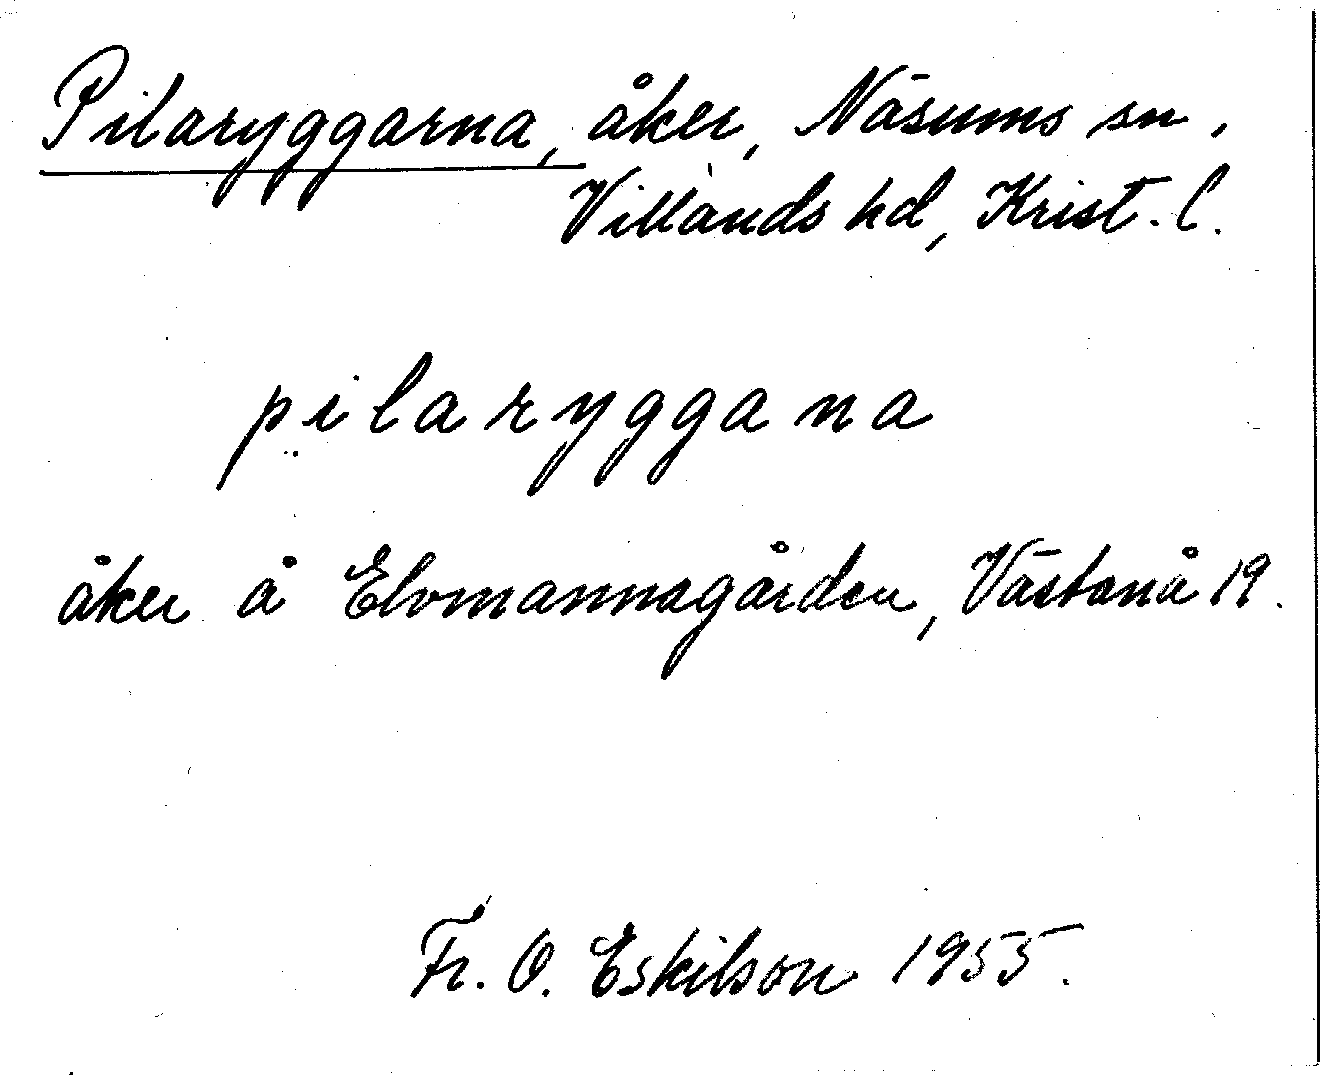 Pilaryggarna, åker, Näsums sn,
Villands hd, Krist. l.
pilaryggana
åker å Elvmannagården, Västanå 19.
Fr. O. Eskilson 1955.